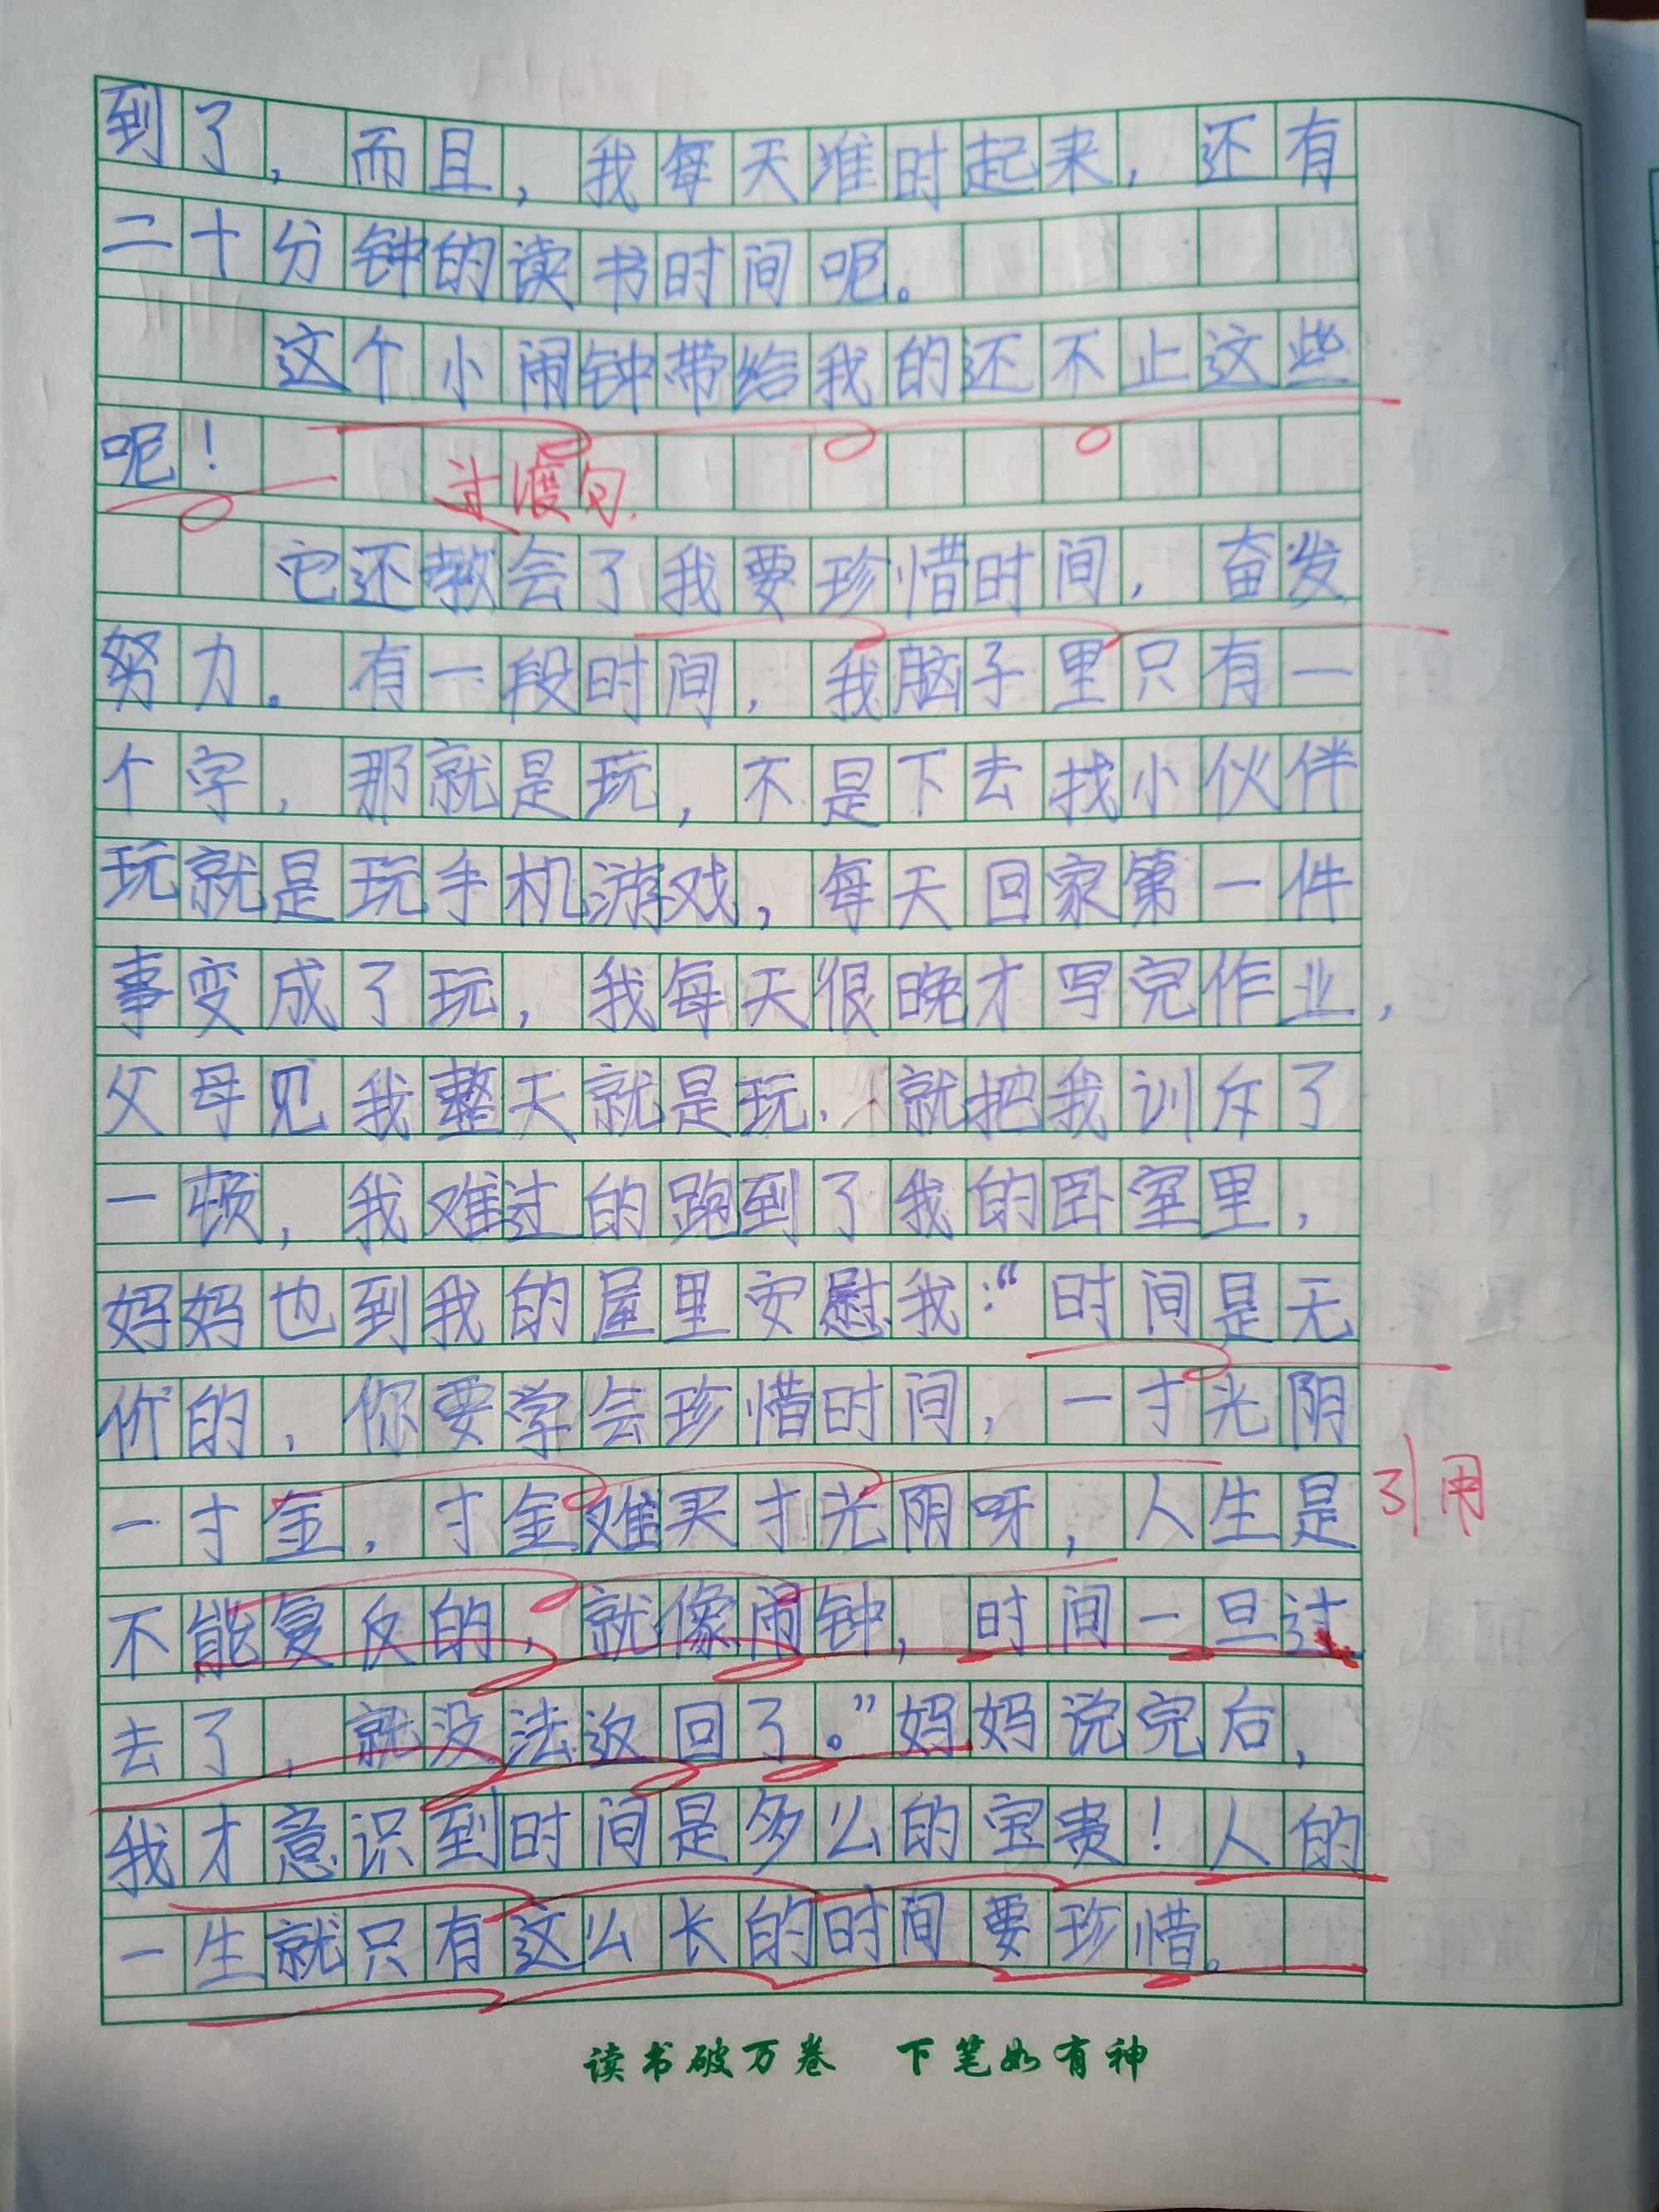 到了，而且，我每天准时起来，还有
二十分钟的读书时间呢。
这个小闹钟带给我的还不止这些
呢！
过渡句
它还教会了我要珍惜时间，奋发
努力。有一段时间，我脑子里只有一
个字，那就是玩，不是下去找小伙伴
玩就是玩手机游戏，每天回家第一件
事变成了玩，我每天很晚才写完作业，
父母见我整天就是玩，就把我训斥了
一顿，我难过的跑到了我的卧室里，
妈妈也到我的屋里安慰我：“时间是无
价的，你要学会珍惜时间，一寸光阴
一寸金，寸金难买寸光阴呀，人生是
引用
不能复反的，就像闹钟，时间一旦过
去了，就没法返回了。”妈妈说完后，
我才意识到时间是多么的宝贵！人的
一生就只有这么长的时间要珍惜。
读书破万卷 下笔如有神